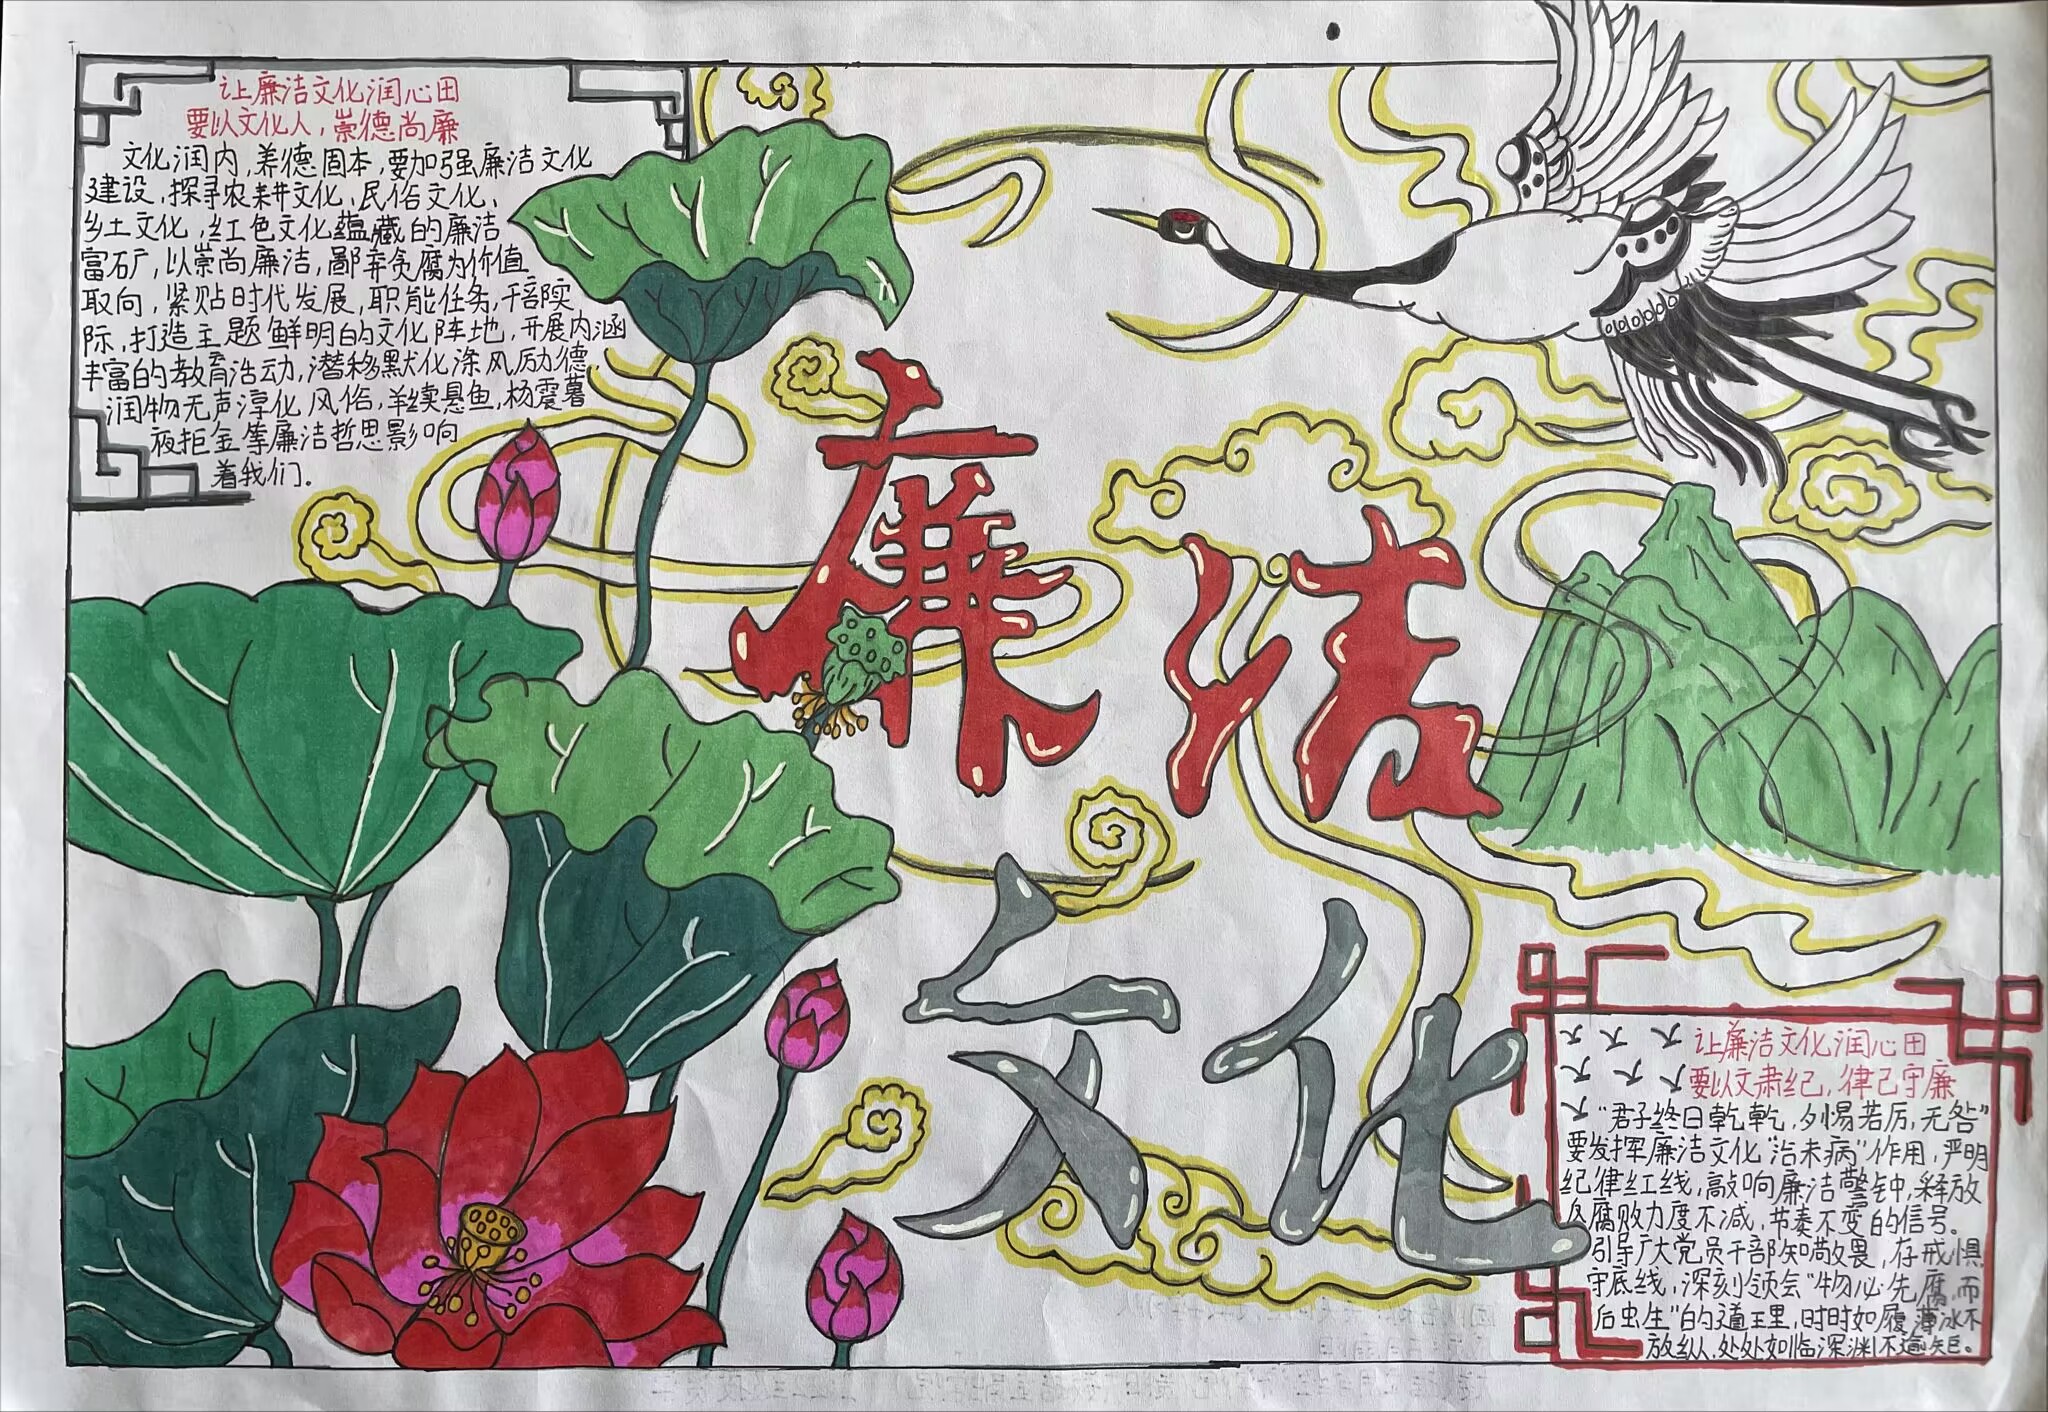 让廉洁文化润心田
要以文化人，崇德尚廉
文化润内，养德固本，要加强廉洁文化
建设，探寻农耕文化、民俗文化、
乡土文化，红色文化蕴藏的廉洁
富矿，以崇尚廉洁，鄙弃贪腐为价值
取向，紧贴时代发展，职能任务，干部实
际，打造主题鲜明的文化阵地，开展内涵
丰富的教育活动，潜移默化涤风励德，
润物无声淳化风俗，羊续悬鱼，杨震暮
夜拒金等廉洁哲思影响
着我们。
廉洁
文化
让廉洁文化润心田
要以文肃纪，律己守廉
“君子终日乾乾，夕惕若厉，无咎”
要发挥廉洁文化“治未病”作用，严明
纪律红线，敲响廉洁警钟，释放
反腐败力度不减，节奏不变的信号。
引导广大党员干部知敬畏，存戒惧
守底线，深刻领会“物必先腐，而
后虫生”的道理，时时如履薄冰不
放纵、处处如临深渊不逾矩。